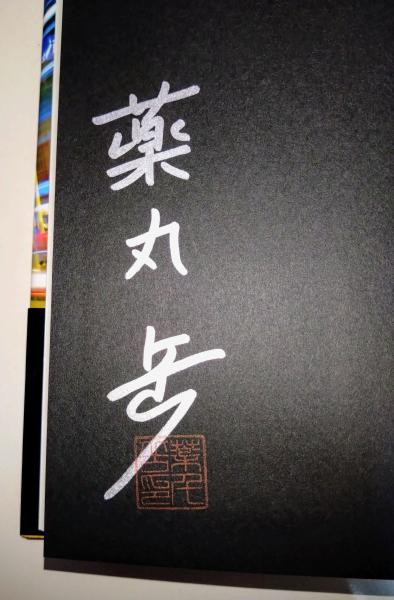 薬丸岳